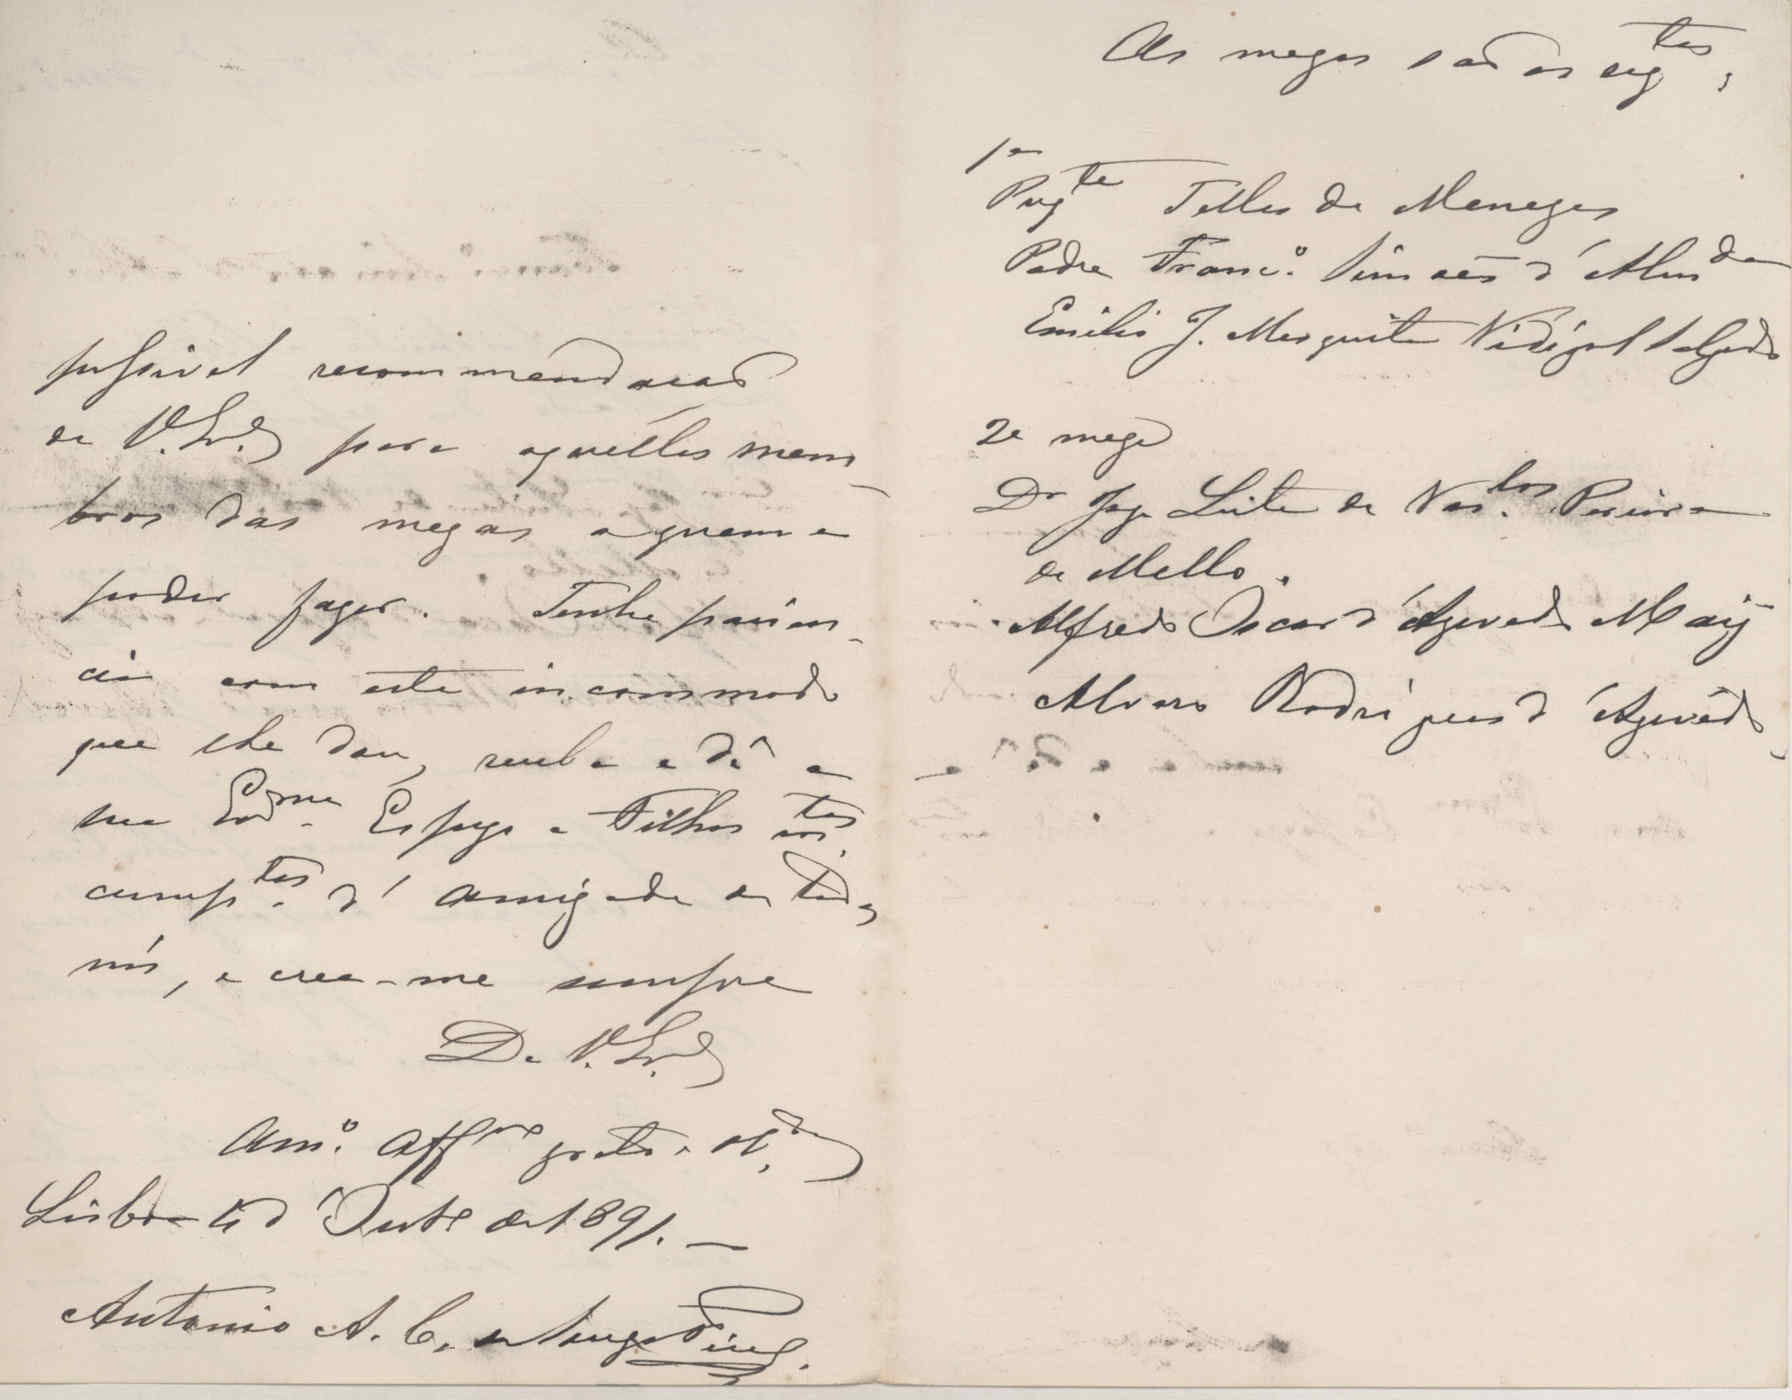 possivel recommendacaõ
de V. Ex.ª para aquelles mem-
bros das mezas a quem a
poder fazer. Tenha pacien-
cia com este incommodo
que lhe dou, receba e dê a
sua Ex.ma Espoza e Filhos
cump.tos d'amizade de todos
nós, e crea-me sempre
De V. Ex.ª
Am.º Aff.do grato
Lisboa 4 d'Out.e de 1891. —
Antonio A. C. de Souza Pinel.
As mezas saõ as seg.tes,
1ª
Preg.te Telles de Menezes
Padre Franc.º Simoẽs d'Almda
Emilio J. Mesquita Vidigal Salgado
2ª meza
Dr Jose Leite de Vas.los Pereira
de Mello.
Alfredo Oscar d'Azevedo May
Alvaro Rodrigues d'Azevêdo